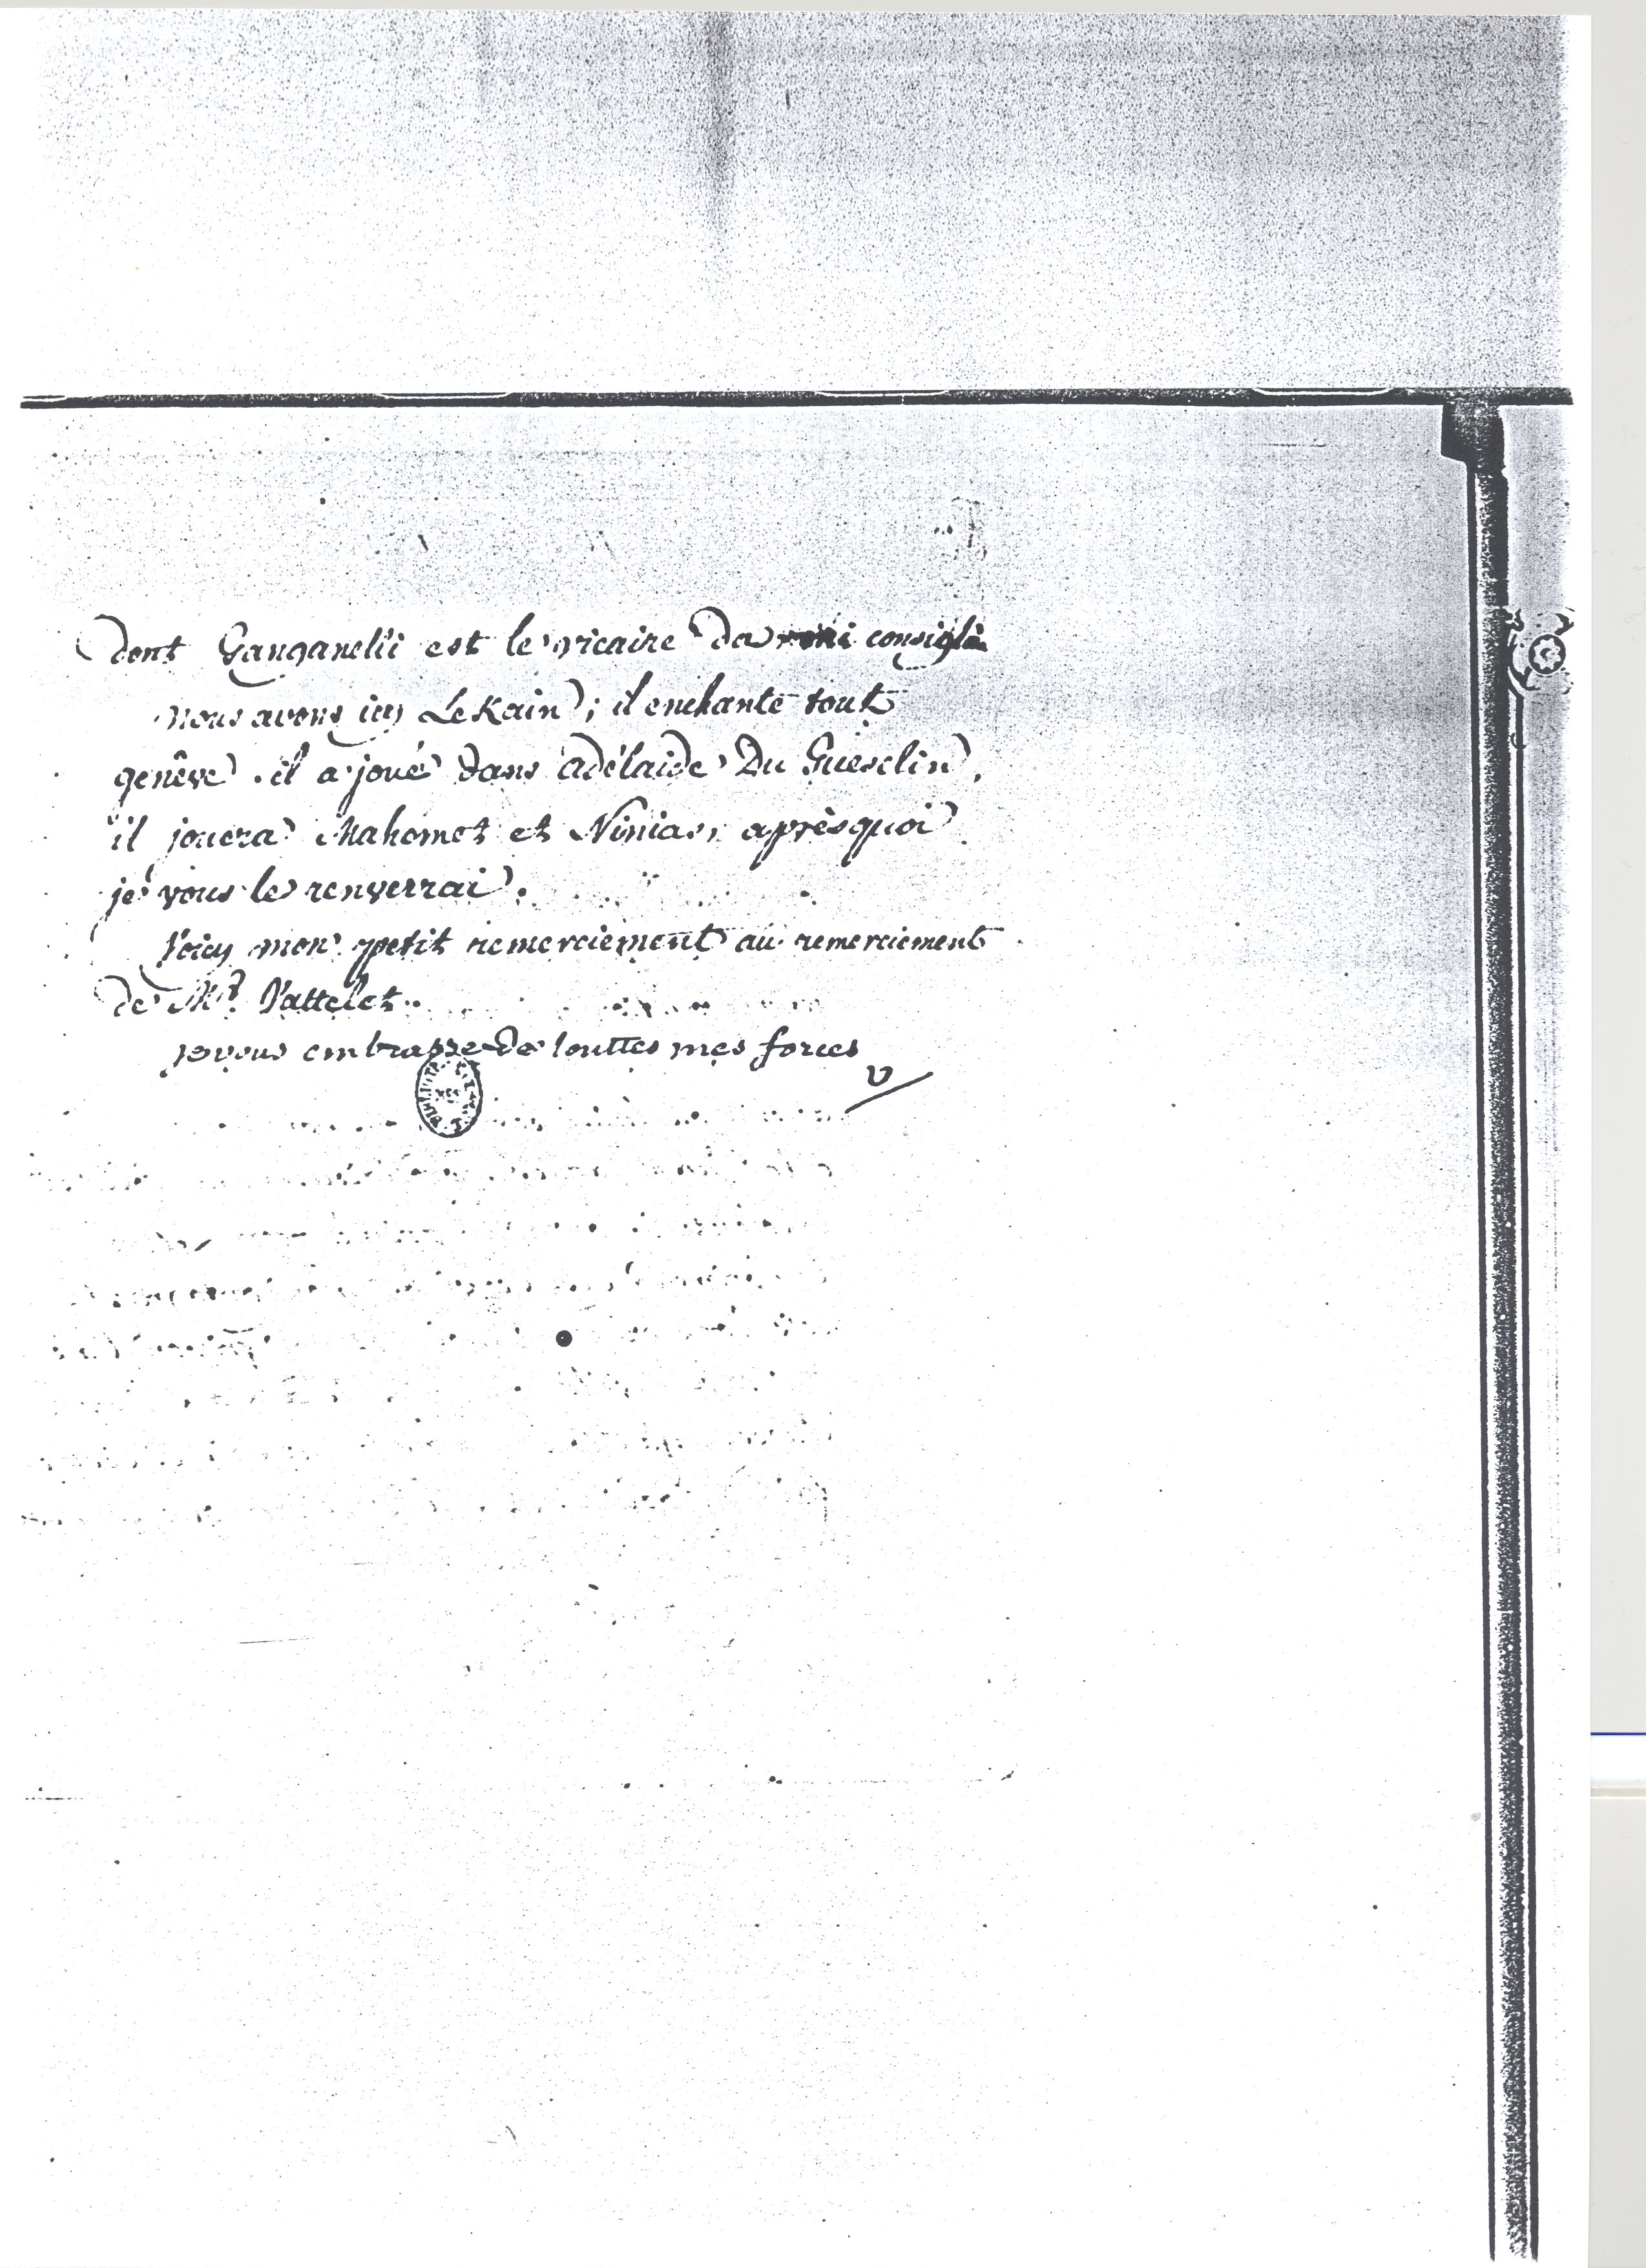 dont Ganganelli est le vicaire da consiglia
nous avons icy Le Kain ; il enchante tout
genêve . il a joué dans adélaide Du Guesclin,
il jouera Mahomet et Ninias, après quoi
je vous le renverrai .
Voicy mon petit remerciement au remerciement
de Mr. Vattelet .
je vous embrasse de touttes mes forces
V